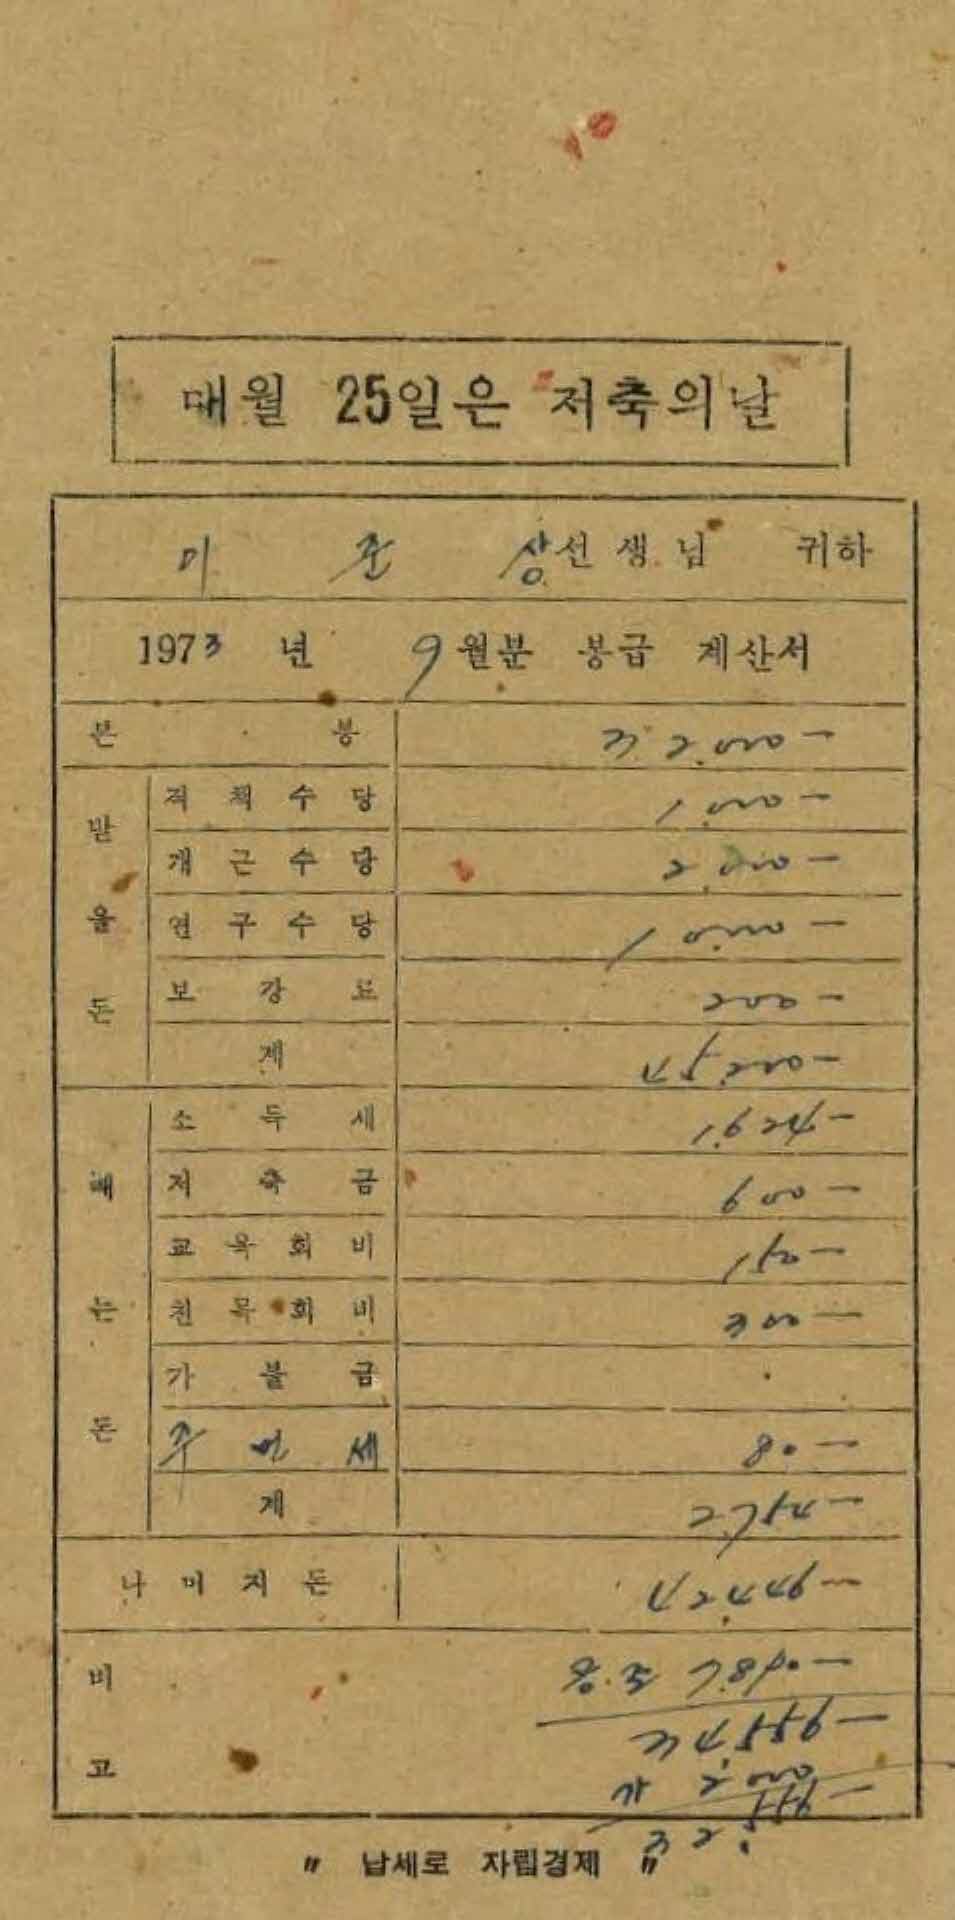 매월 25일은 저축의날
이 준 상 선생님 귀하
1973 년 9월분 봉급 계산서
본 봉 32.000-
받을돈
직책수당 1.000-
개근수당 2.000-
연구수당 10.000-
보강료 200-
계 45.200-
빼는돈
소득세 1.624-
저축금 600-
교육회비 150-
친목회비 300-
가불금
주민세 80-
계 2.754-
나머지돈 42.446-
비고
7.890-
34.556-
가 2.000
32.556-
" 납세로 자립경제 "